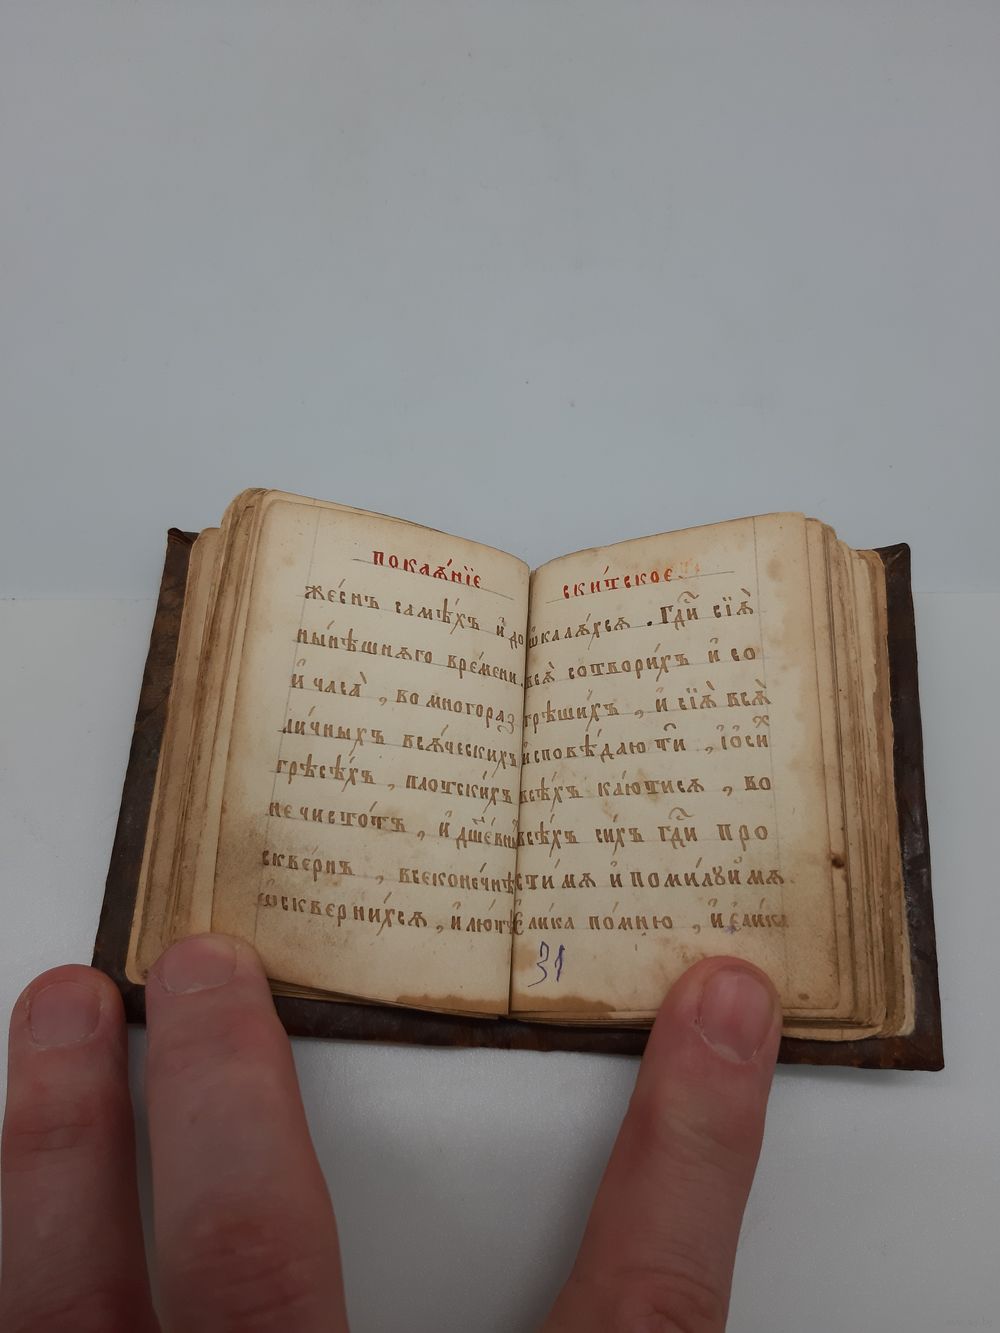 покаѧ́нїе
же́снъ самѣ́хъ и҆ до
ны́нѣшнѧго вре́мени.
и҆ часа̀ , во многораз
ли́чныхъ всѧ́ческихъ
грѣсѣ́хъ , плотски́хъ
нечисто́тъ , и҆ дш҃е́вны
скве́рнъ , всеконе́чнѣ
ѡ҆скверни́хсѧ , и҆ лю́тѣ
ски́тское
ѡ҆калѧ́хсѧ . Гдⷭ҇и сїѧ̀
всѧ̀ сотвори́хъ и҆ со
грѣши́хъ , и҆ сїѧ̀ всѧ̀
и҆сповѣ́даю ти , и҆ ѡ҆ си́х
всѣ́хъ ка́ютисѧ , во
всѣ́хъ си́хъ гдⷭ҇и про
сти́ мѧ и҆ поми́лꙋй мѧ
Е҆ли́ка по́мню , и҆ є҆ли́ка
31